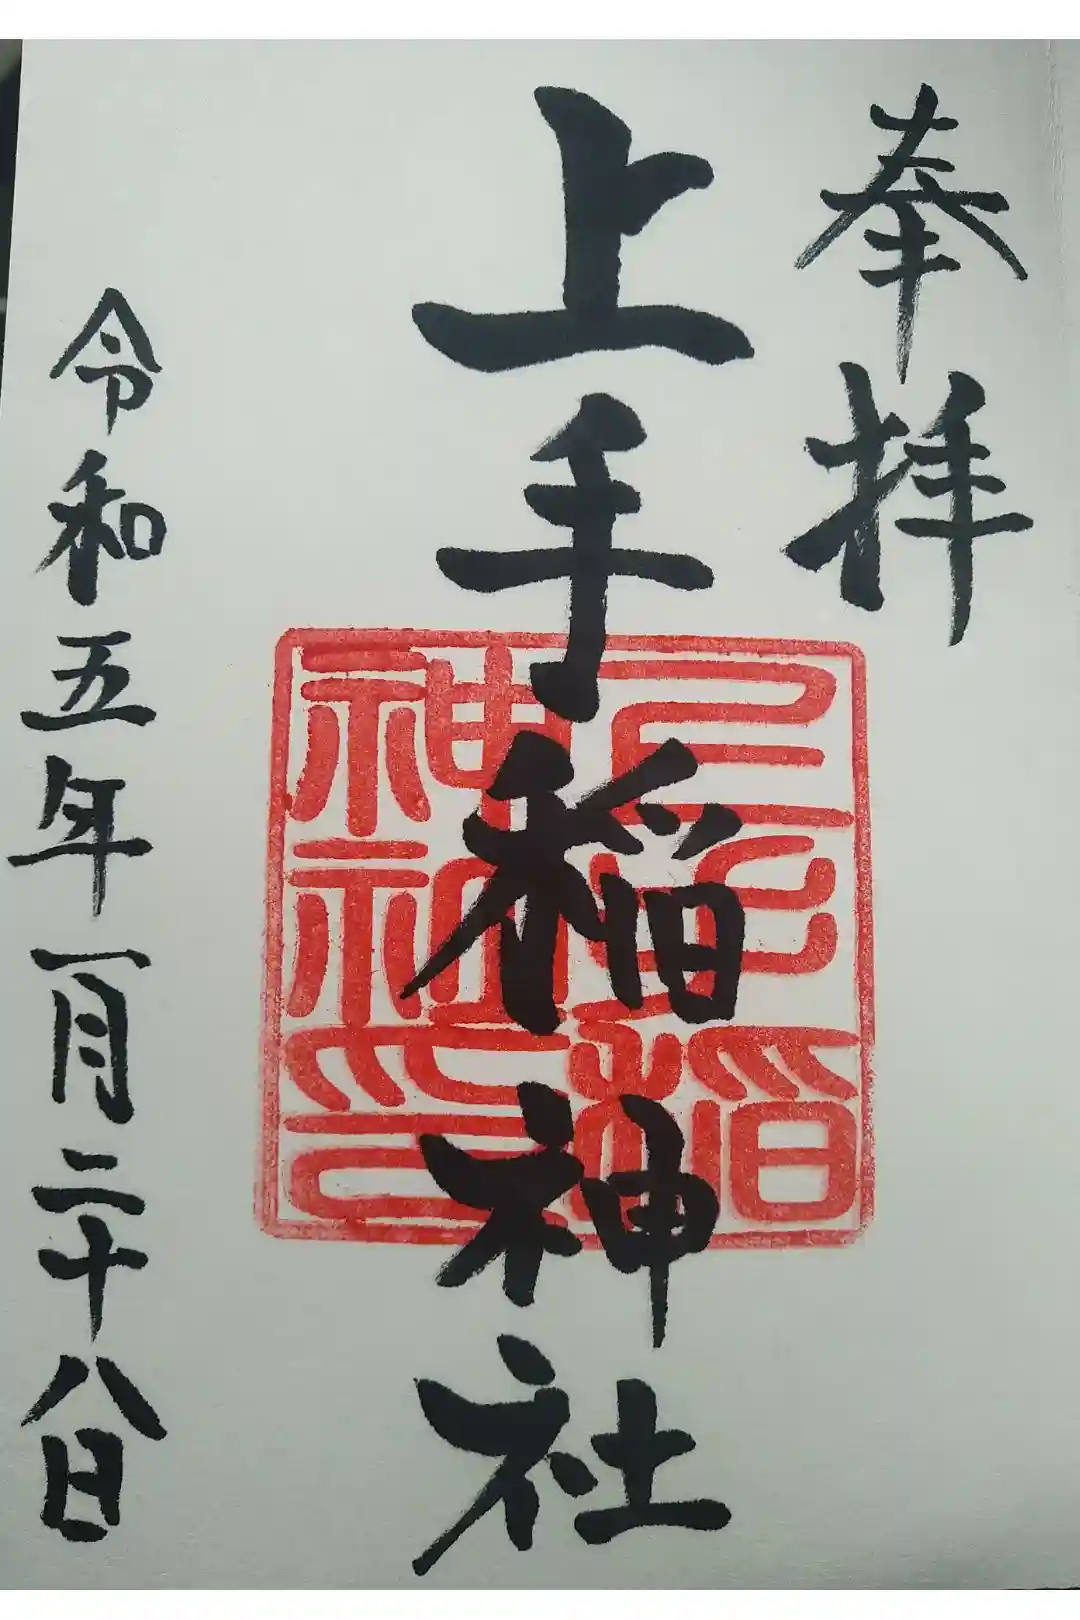 奉拝
上手稲神社
令和五年一月二十八日
上手稲
神社印